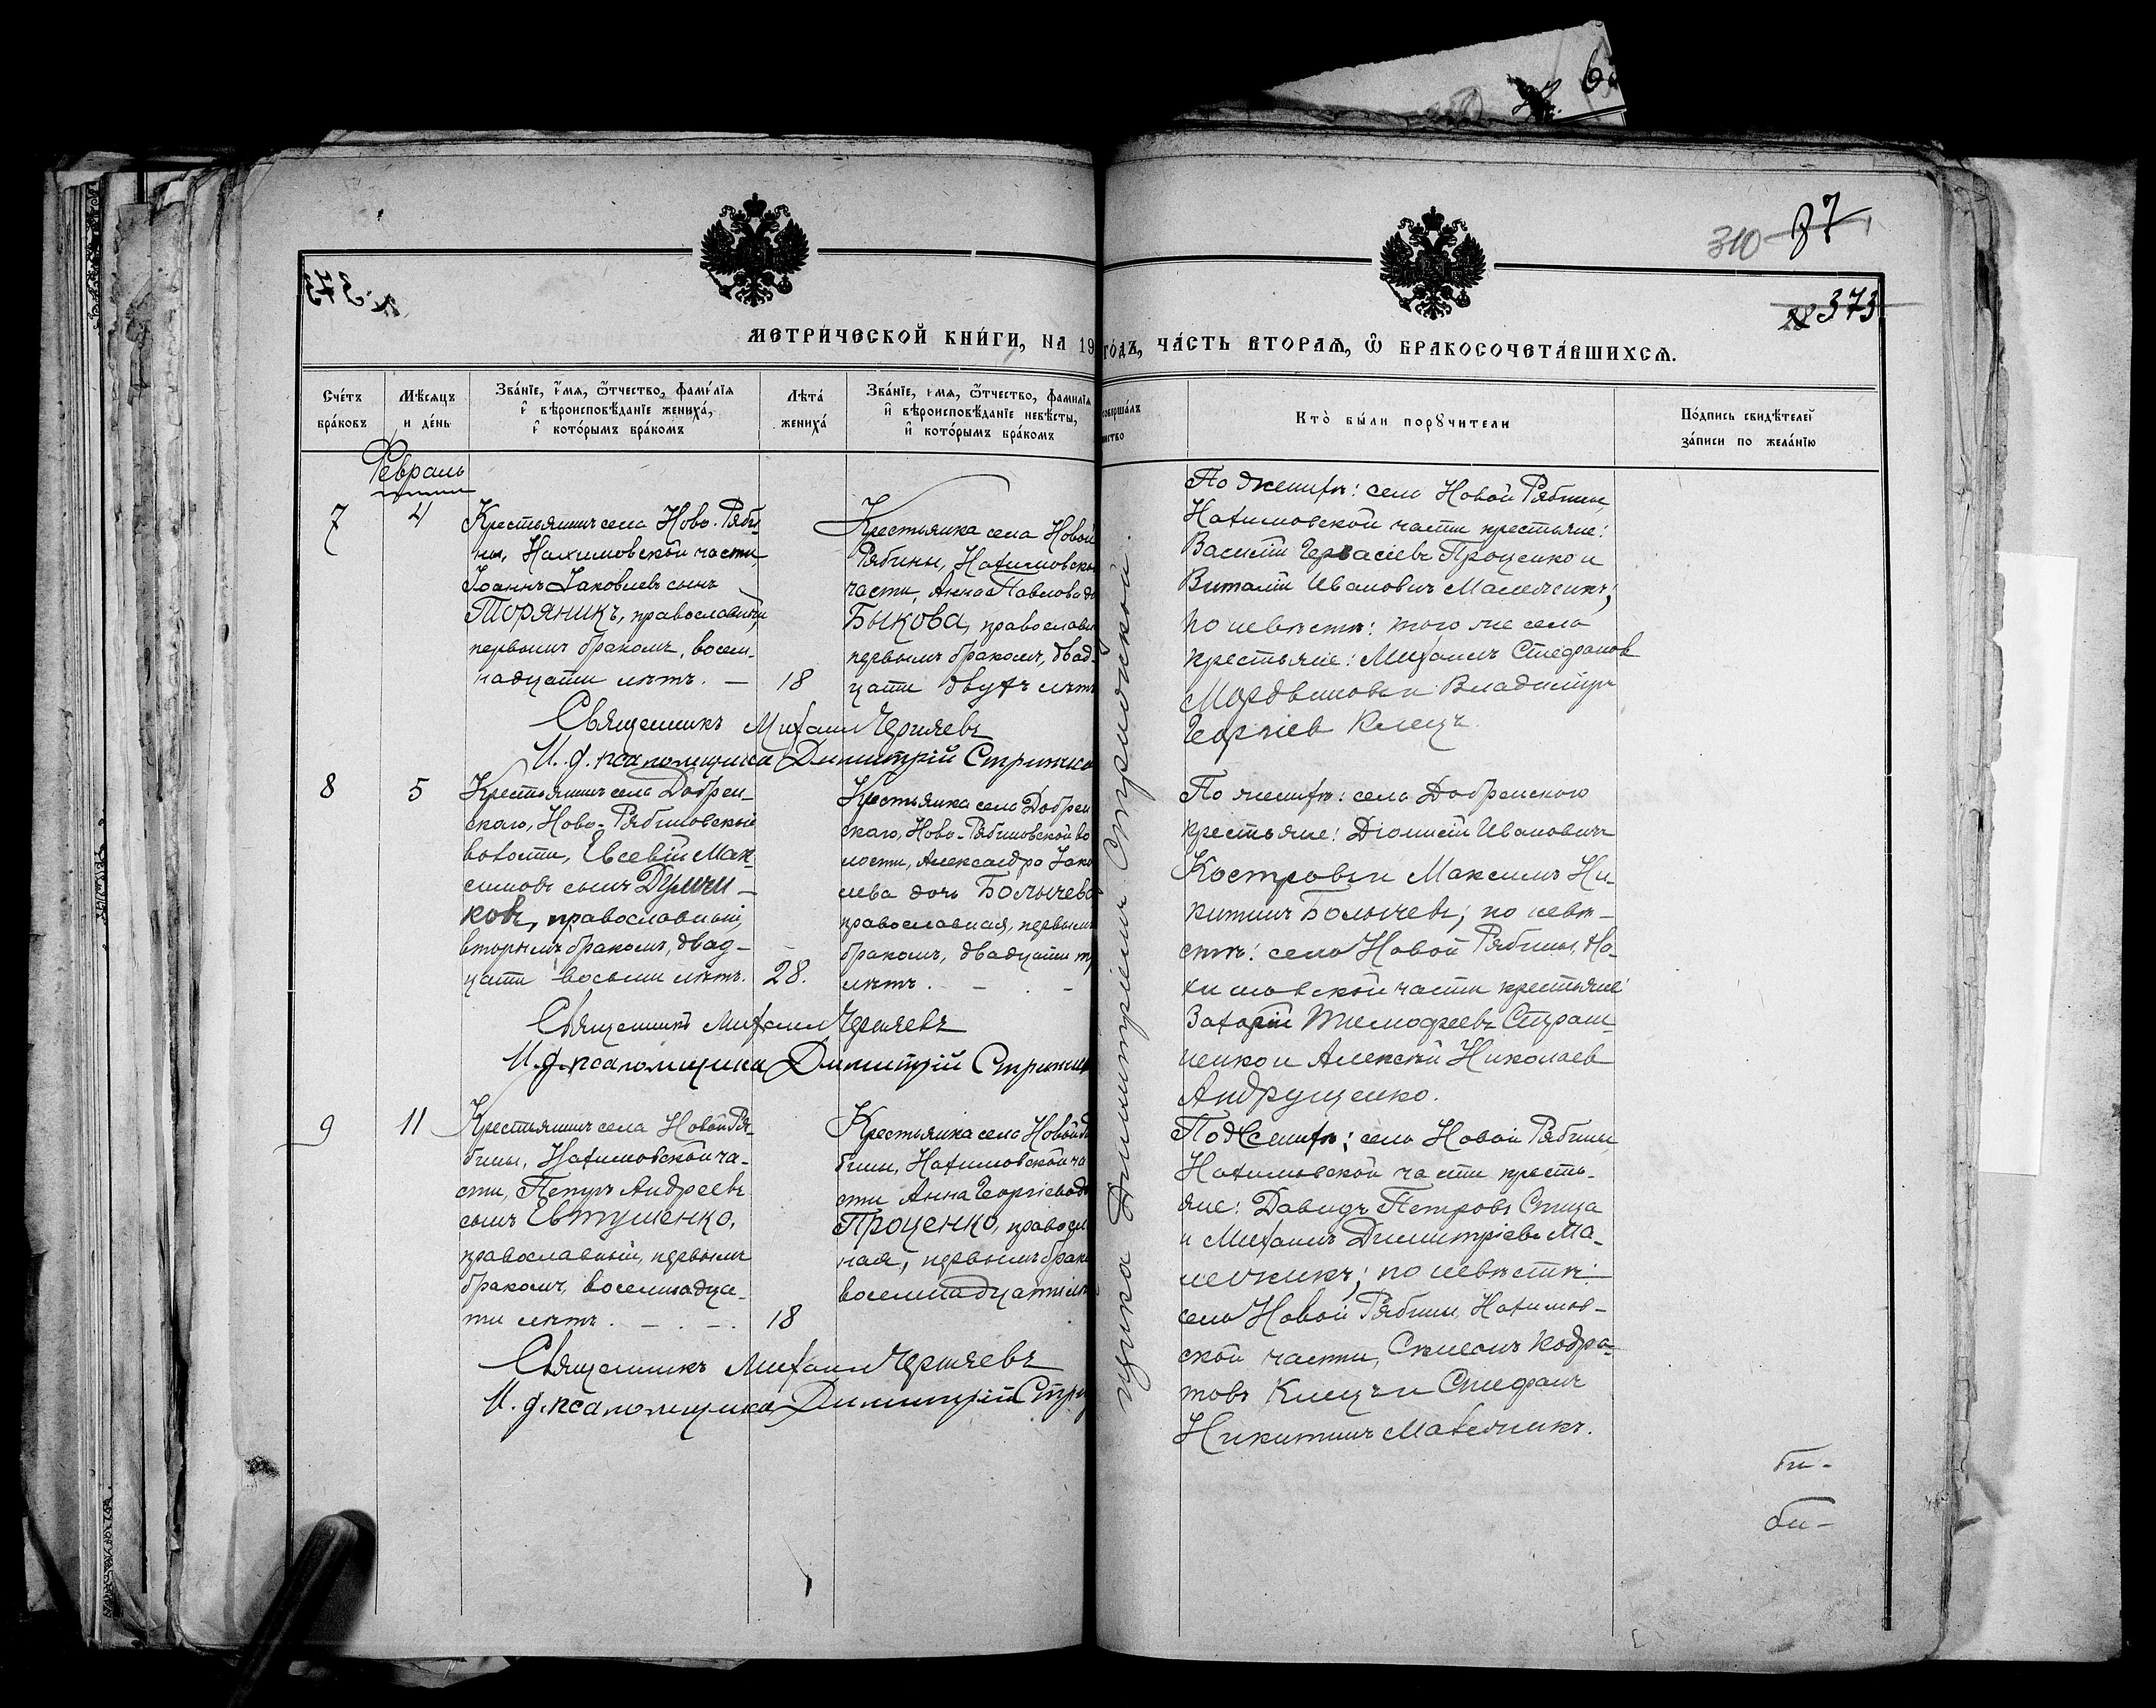 310 87
№ 373
МЕТРИ́ЧЕСКОЙ КНИ́ГИ, НА 19
ГО́ДЪ, ЧА́СТЬ ВТОРА́Ѧ, Ѽ БРАКОСОЧЕТА́ВШИХСѦ.
Сче́тъ бра́ковъ
Мѣ́сѧцъ и де́нь
Зва́нїе, и҆́мѧ, ѻ҆́тчество, фами́лїѧ
и҆ вѣроисповѣ́данїе жениха́,
и҆ кото́рымъ бра́комъ
Лѣ́та жениха́
Зва́нїе, и҆́мѧ, ѻ҆́тчество, фами́лїѧ
и҆ вѣроисповѣ́данїе невѣ́сты,
и҆ кото́рымъ бра́комъ
соверша́лъ
Кто̀ бы́ли порꙋчи́тели
По́дпись свидѣ́телей
за́писи по жела́нїю
Февраль
7
4
Крестьянинъ села Ново-Ряби
ны, Нахимовской части,
Іоаннъ Іаковлевъ сынъ
Торяникъ, православный,
первымъ бракомъ, восем-
надцати лѣтъ. —
18
Крестьянка села Новой
Рябины, Нахимовской
части, Анна Павлова до
Быкова, православн
первымъ бракомъ, двад-
цати двухъ лѣтъ
По женихѣ: села Новой Рябины,
Нахимовской части крестьяне:
Василій Гервасіевъ Проценко и
Виталій Ивановичъ Малежикъ;
по невѣстѣ: того же села
крестьяне: Михаилъ Стефановъ
Мордвиновъ и Владимиръ
Георгіев Клецъ.
Священникъ Михаил Черняевъ
И. д. псаломщика Димитрій Стрижко
8
5
Крестьянинъ села Добрен-
скаго, Ново-Рябиновской
волости, Евсевій Мак-
симовъ сынъ
ковъ, православный,
вторымъ бракомъ, двад-
цати восьми лѣтъ.
28.
Крестьянка села Добрен
скаго, Ново-Рябиновской во
лости, Александра Іаков
лева дочь Болычева
православная, первымъ
бракомъ, двадцати тр
лѣтъ. —
По женихѣ: села Добренскаго
крестьяне: Діонисій Ивановичъ
Костровъ и Максимъ Ни-
китинъ Болычевъ; по невѣ-
стѣ: села Новой Рябины, На-
химовской части крестьяне:
Захарій Тимофеевъ Страш-
ненко и Алексѣй Николаев
Андрущенко.
Священникъ Михаил Черняевъ
И. д. псаломщика Димитрій Стрижк
9
11
Крестьянинъ села Новой Ря-
бины, Нахимовской ча-
сти, Петръ Андреевъ
сынъ Евтушенко,
православный, первымъ
бракомъ, восемнадца-
ти лѣтъ. —. —.
18
Крестьянка села Новой Ря
бины, Нахимовской ча
сти Анна Георгіева до
Проценко, правосл
ная, первымъ брако
восемнадцати лѣ
По женихѣ: села Новой Рябины
Нахимовской части кресть-
яне: Давидъ Петровъ Спица
и Михаилъ Димитріевъ Ма-
лежикъ; по невѣстѣ:
села Новой Рябины, Нахимов-
ской части, Кодра-
товъ Клецъ и Стефанъ
Никитинъ Малежикъ.
Священникъ Михаил Черняевъ
И. д. псаломщика Димитрій Стри
щика Димитріемъ Стрижкой.
би-
би-